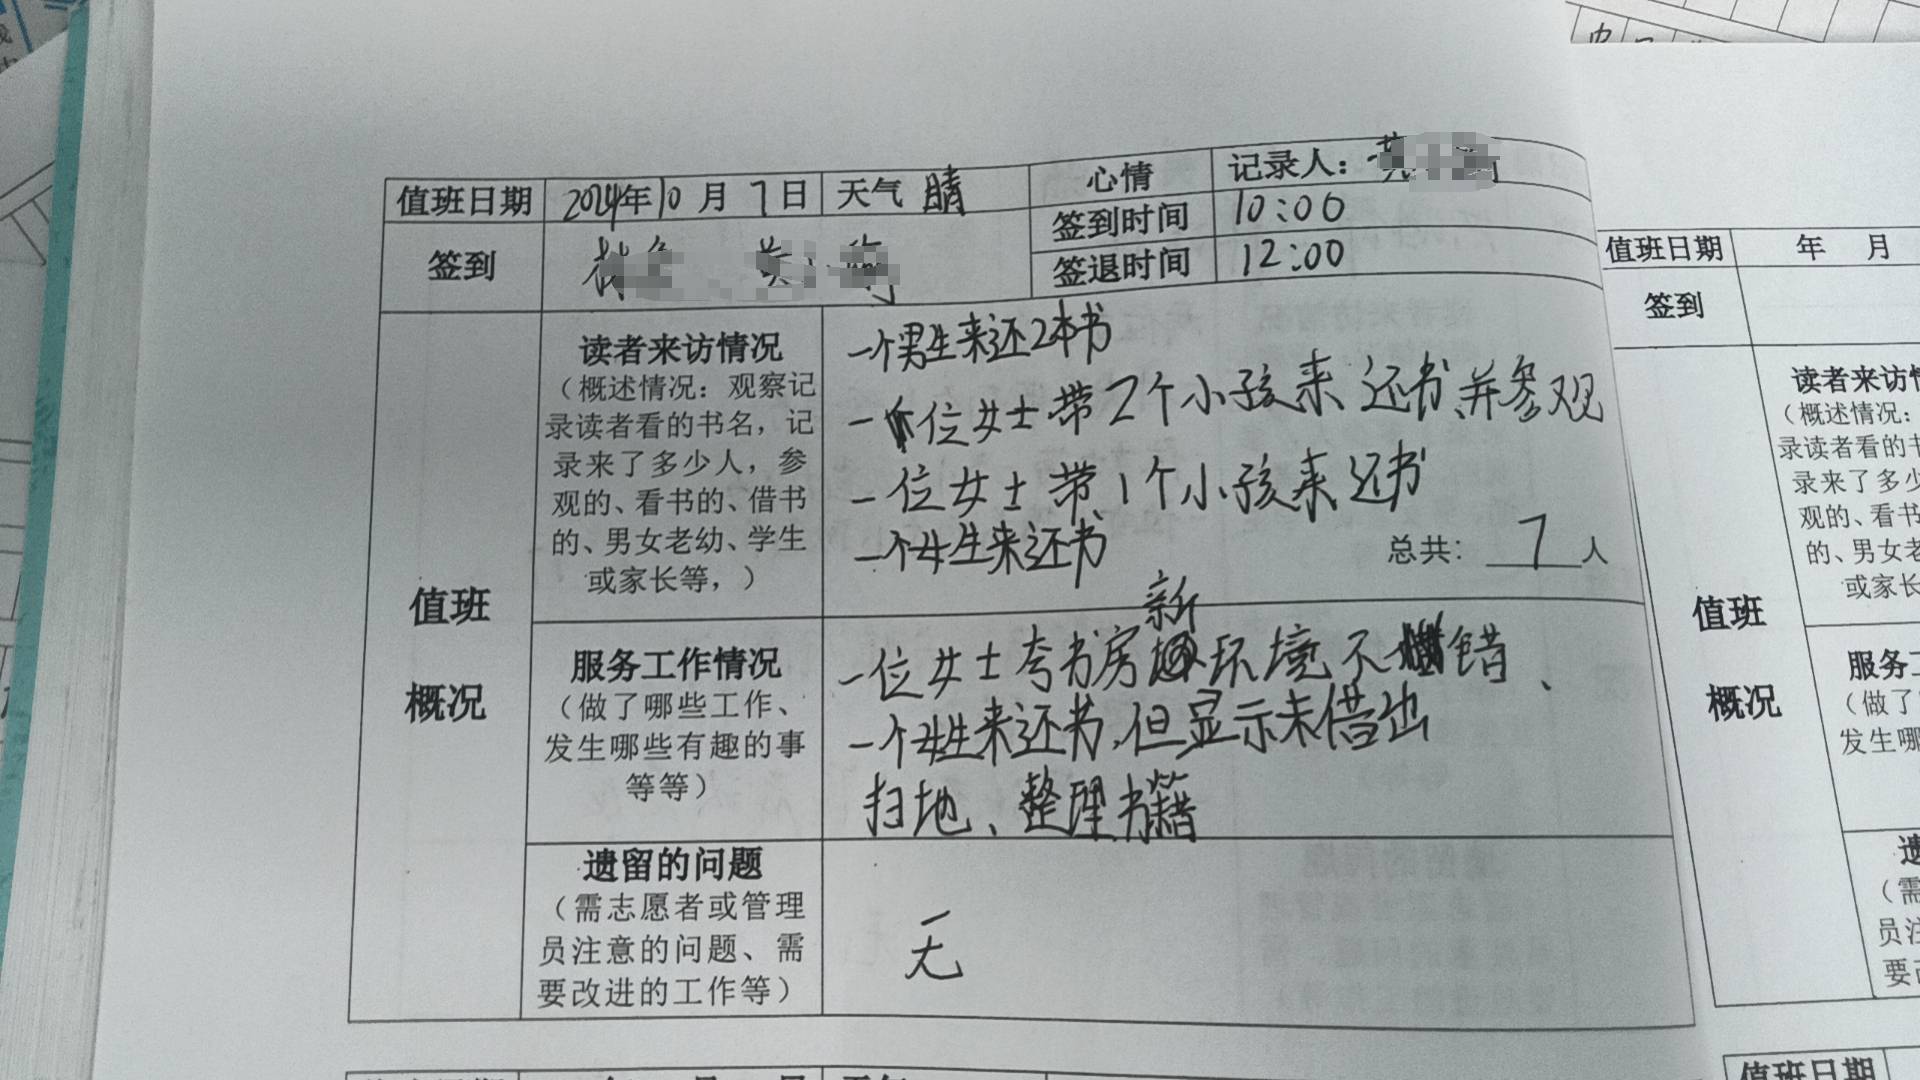 值班日期 2024年10月7日 天气 晴 心情 记录人：
签到 签到时间 10:00
签退时间 12:00
值班
概况
读者来访情况
（概述情况：观察记
录读者看的书名，记
录来了多少人，参
观的、看书的、借书
的、男女老幼、学生
或家长等，）
一个男生来还2本书
一位女士带2个小孩来还书,并参观
一位女士带1个小孩来还书
一个女生来还书
总共：7人
服务工作情况
（做了哪些工作、
发生哪些有趣的事
等等）
一位女士夸书房新环境不错、
一个女生来还书,但显示未借出
扫地、整理书籍
遗留的问题
（需志愿者或管理
员注意的问题、需
要改进的工作等）
无
值班日期 年 月
签到
值班
概况
读者来访
（概述情况：
录读者看的
录来了多
观的、看书
的、男女
或家长
服务
（做了
发生
（需
员
要
值班日期